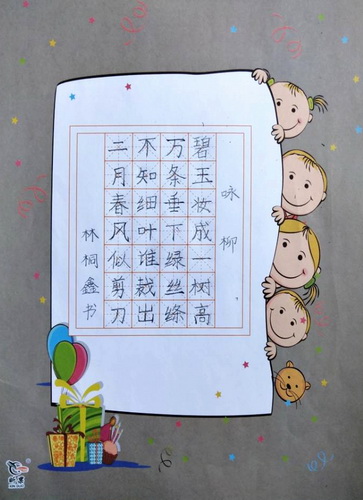 咏柳
碧玉妆成一树高
万条垂下绿丝绦
不知细叶谁裁出
二月春风似剪刀
林桐鑫书